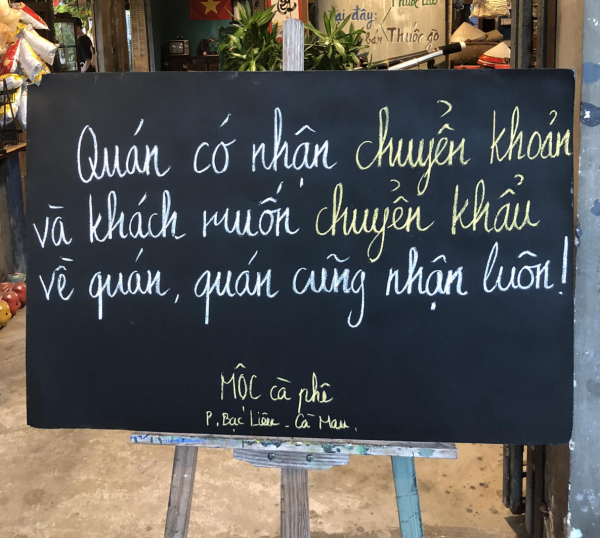 Tại đây:
bán Thuốc gò
Quán có nhận chuyển khoản
và khách muốn chuyển khẩu
về quán, quán cũng nhận luôn!
MỘC cà phê
P. Bạc Liêu - Cà Mau.